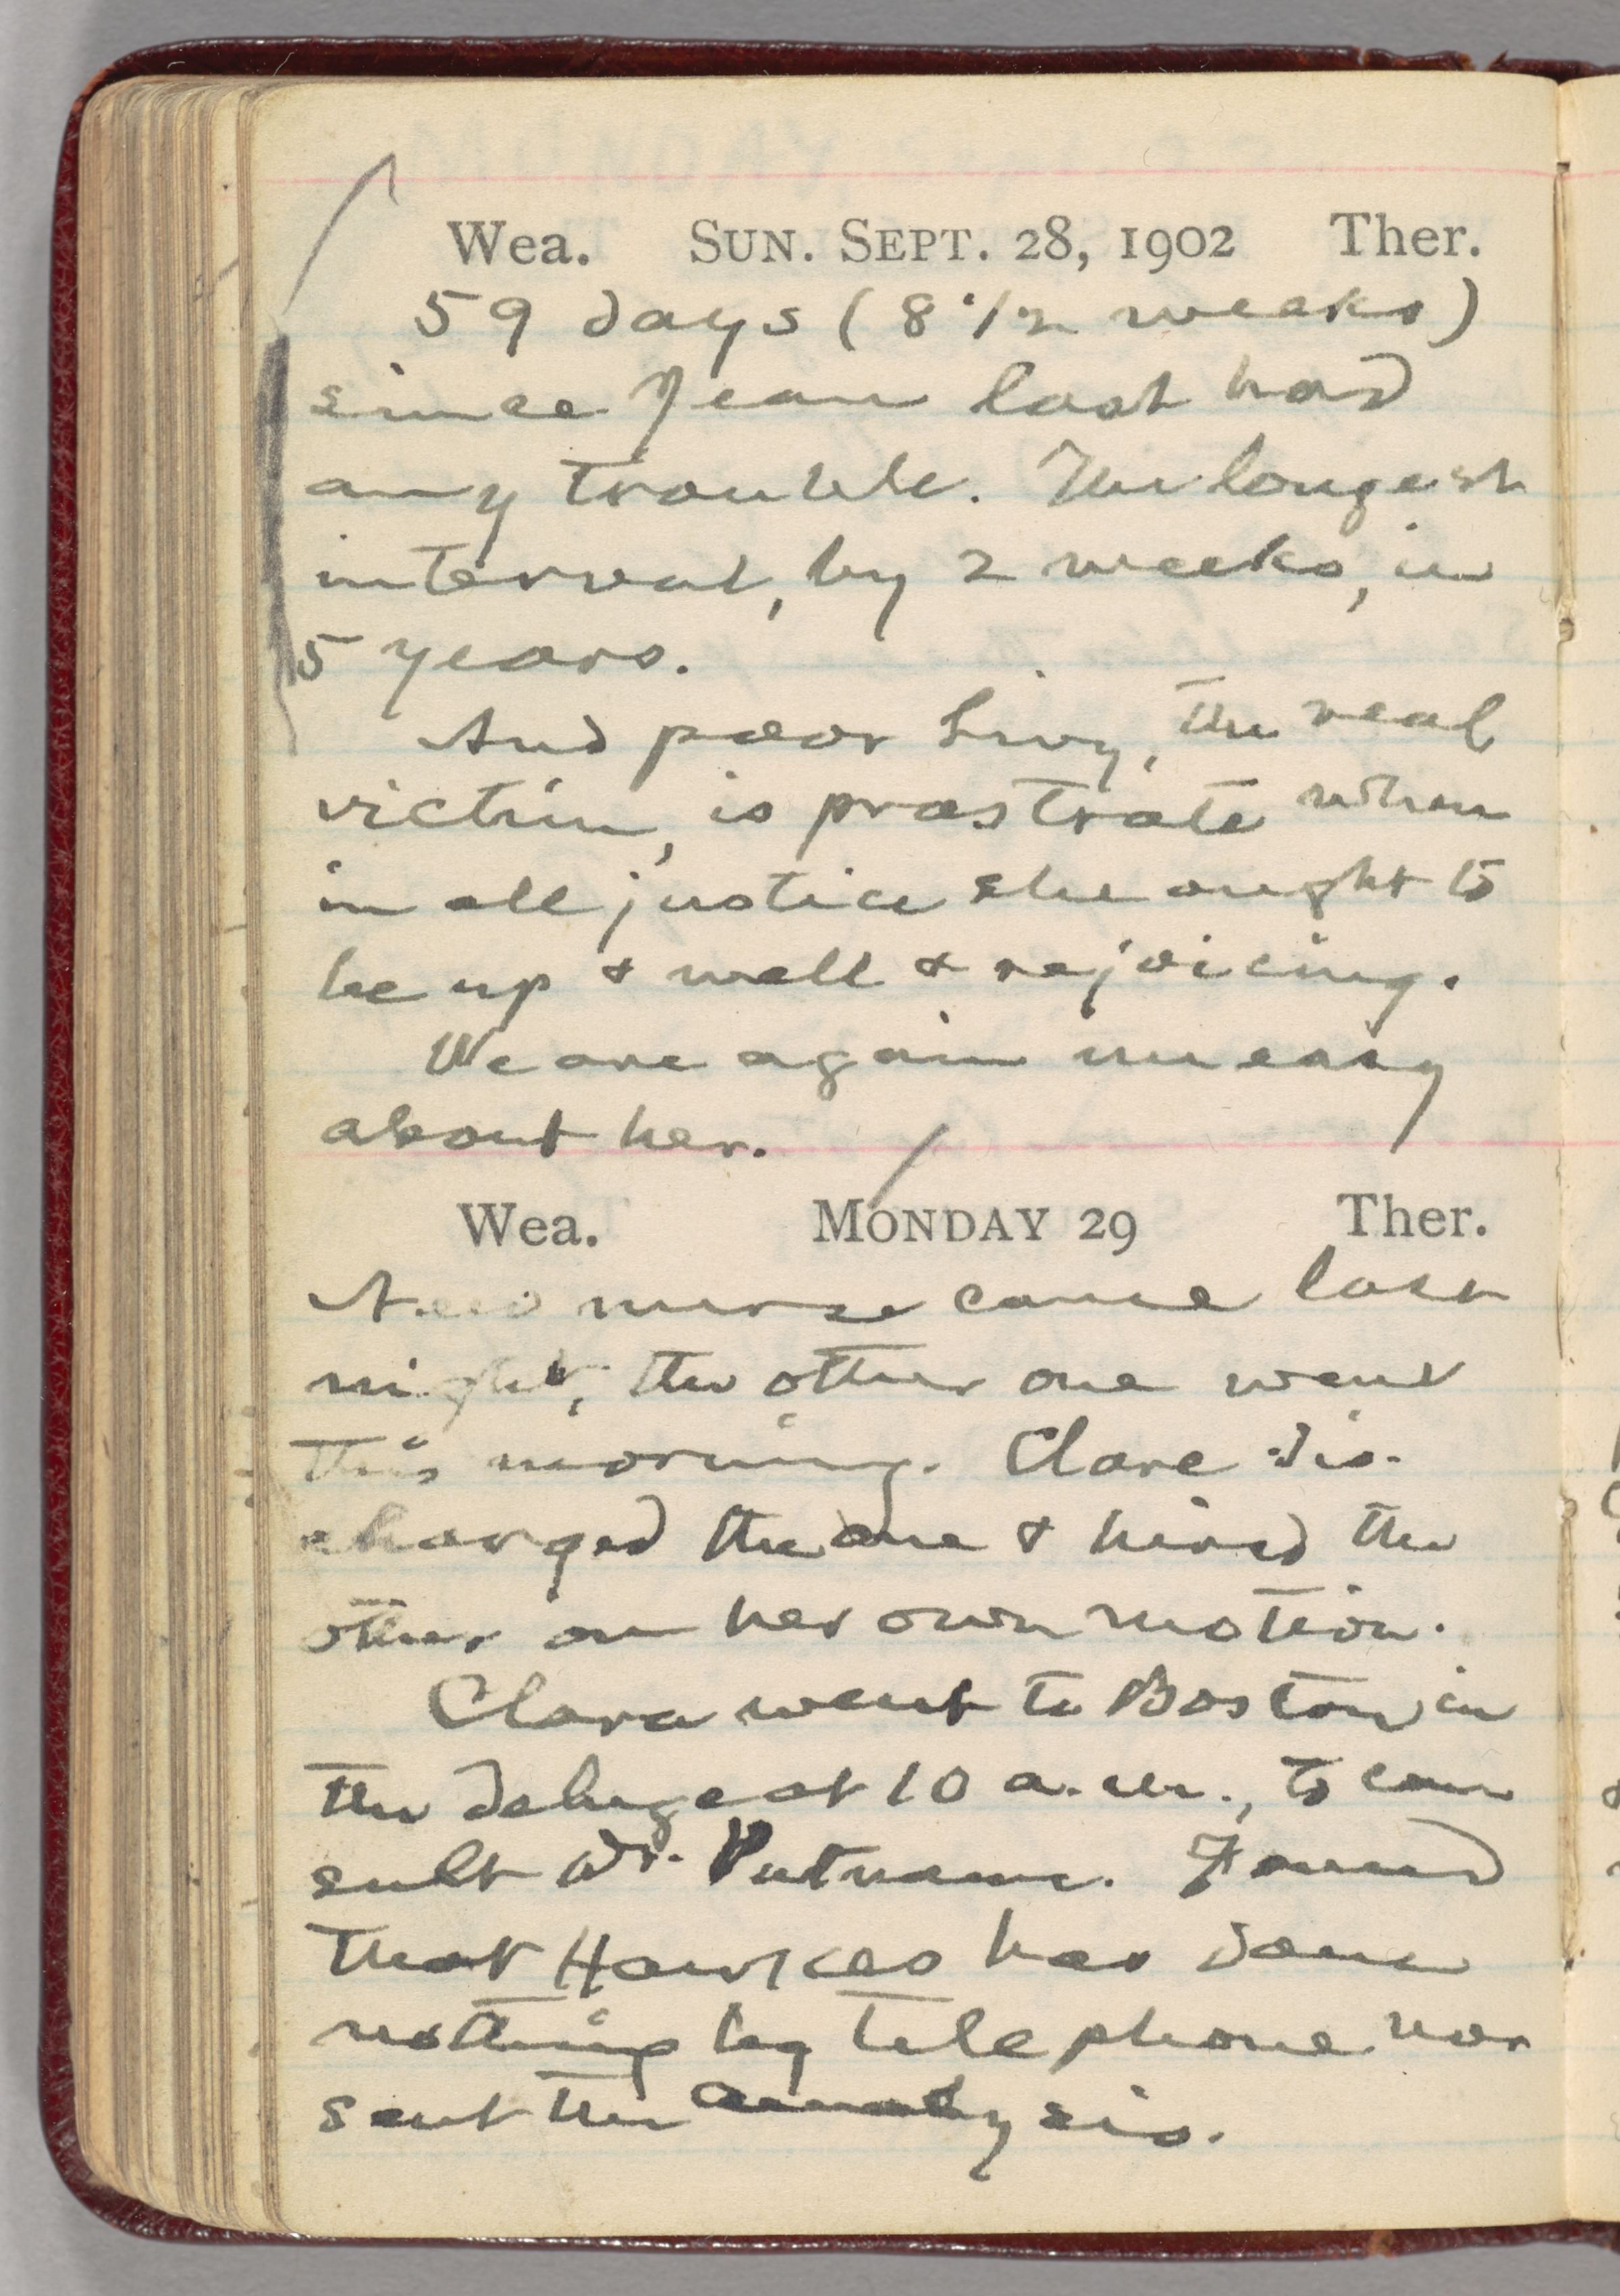 Wea. SUN. SEPT. 28, 1902 Ther.
59 days (8 1/2 weeks)
since Jean last had
any trouble. The longest
interval, by 2 weeks, in
5 years.
And poor Livy, the real
victim, is prostrate when
in all justice she ought to
be up & well & rejoicing.
We are again uneasy
about her.
Wea. MONDAY 29 Ther.
New nurse came last
night; the other one went
this morning. Clare dis-
charged the one & hired the
other on her own motion.
Clara went to Boston in
the deluge at 10 a.m., to con
sult Dr. Putnam. Found
that Hawkes has done
nothing by telephone nor
sent the analysis.